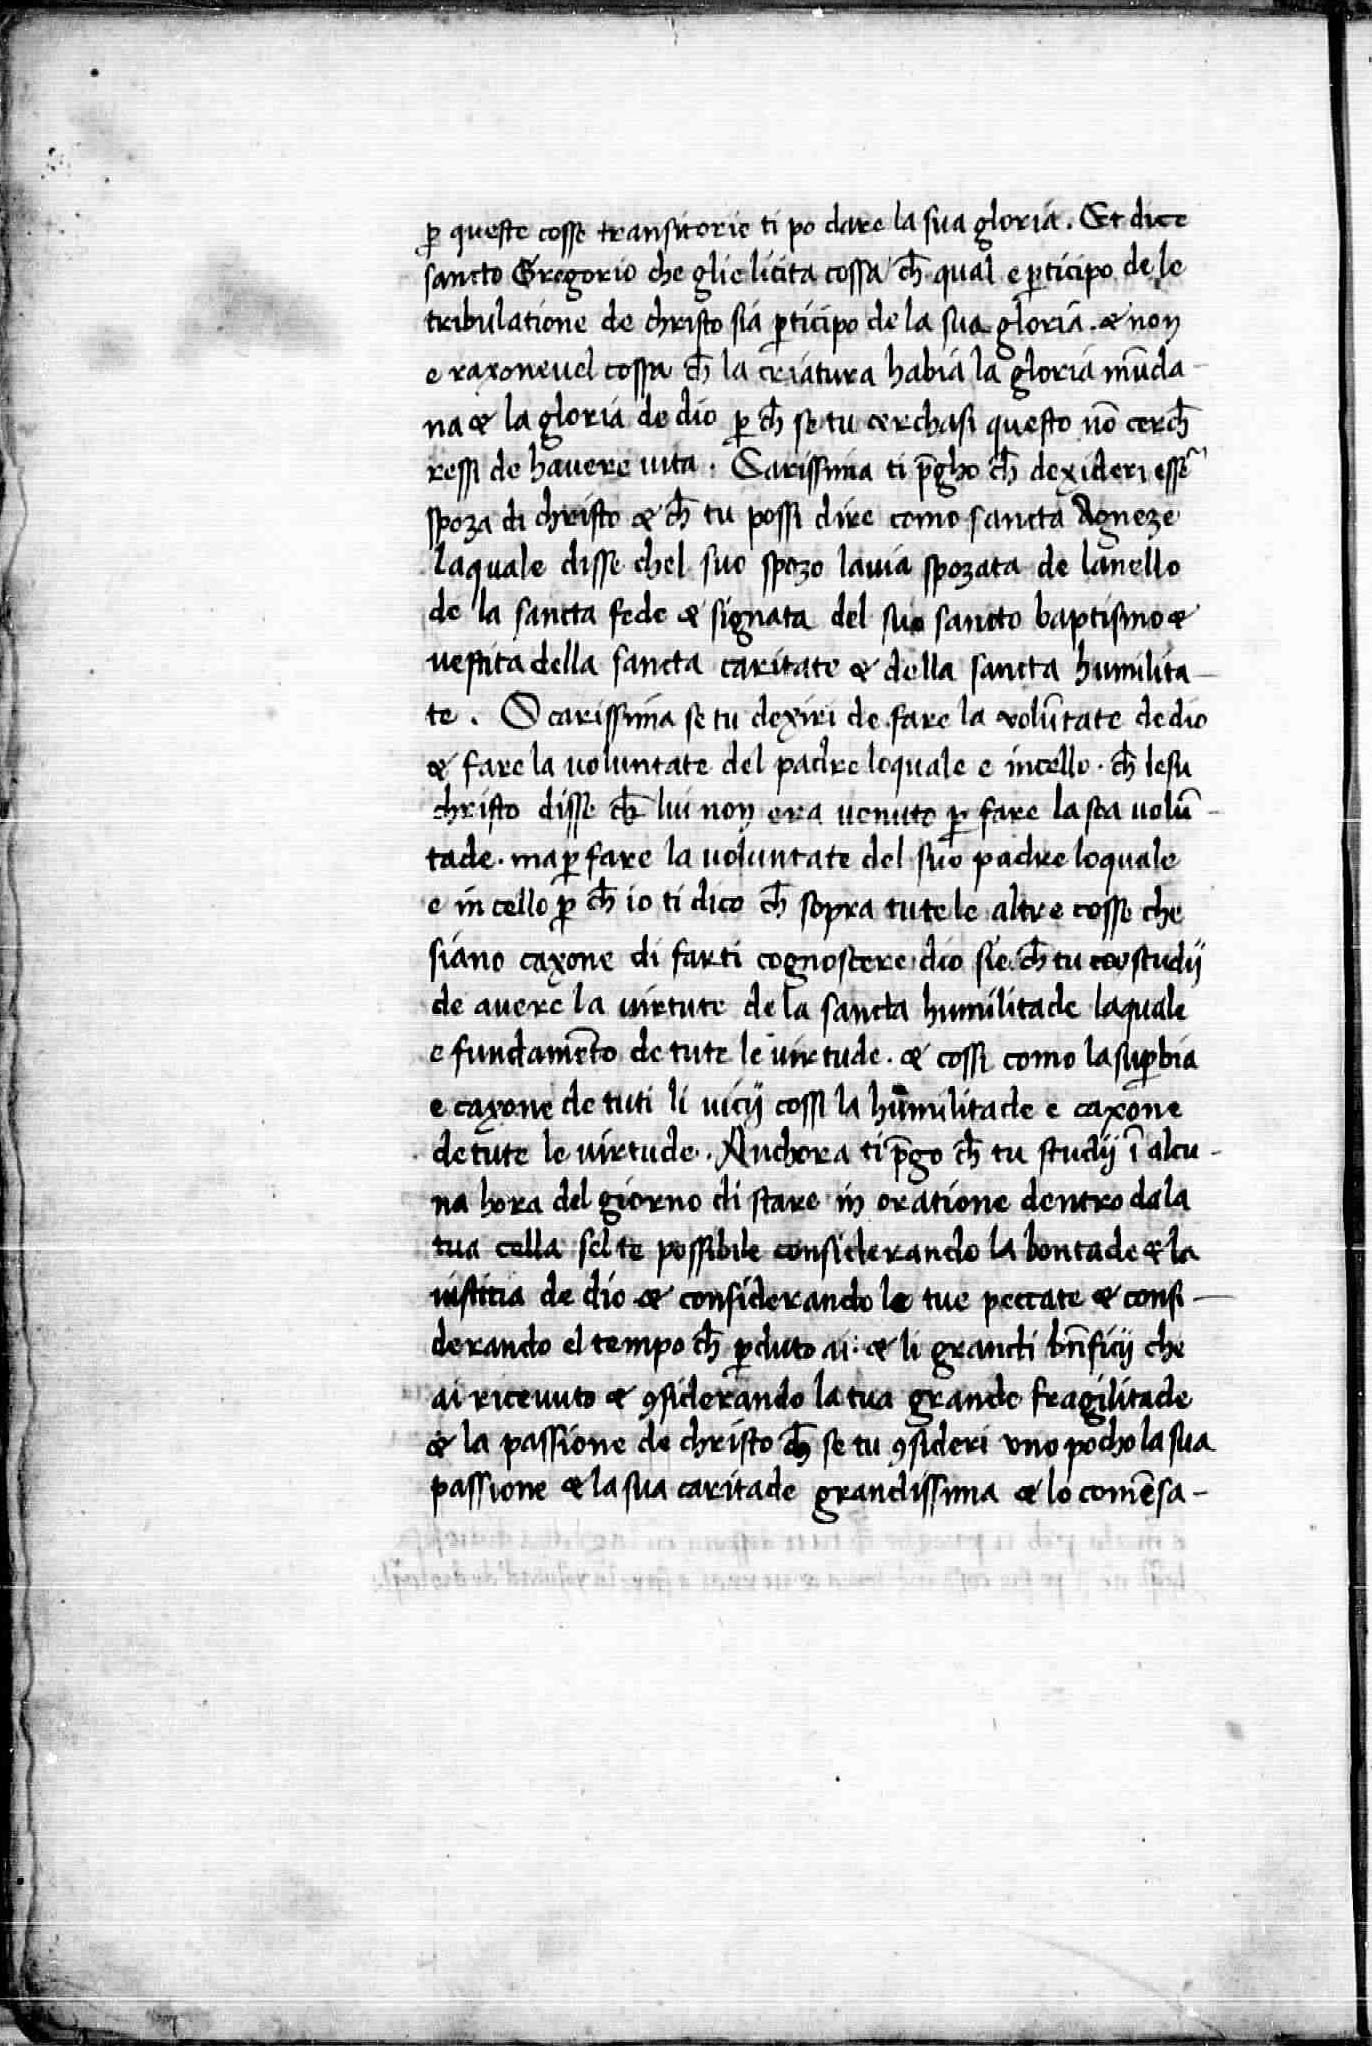 ꝑ queste cosse transitorie ti po dare la sua gloria. Et dice
sancto Gregorio che glie licita cossa ch̄ qual e ꝑticipo de le
tribulatione de christo sia ꝑticipo de la sua gloria. & non
e raxoneuel cossa ch̄ la criatura habia la gloria mūda-
na & la gloria de dio ꝑ ch̄ se tu cerchasi questo nō cerch̄
ressi de havere vita. Carissima ti p̄gho ch̄ dexideri essē
spoza di christo & ch̄ tu possi dire como sancta Agneze
laquale disse chel suo spozo lauia spozata de lanello
de la sancta fede & signata del suo sancto baptismo &
uestita della sancta caritate & della sancta humilita-
te. O carissima se tu dexiri de fare la volūtate de dio
& fare la voluntate del padre loquale e in cello. ch̄ Iesu
christo disse ch̄ lui non era venuto ꝑ fare la sea volū-
tade. ma ꝑ fare la voluntate del suo padre loquale
e in cello ꝑ ch̄ io ti dico ch̄ sopra tute le altre cosse che
siano caxone di farti cognoscere dio sie ch̄ tu studij
de avere la virtute de la sancta humilitade laquale
e fundamēto de tute le virtude. & cossi como la suꝑbia
e caxone de tuti li vicij cossi la humilitade e caxone
de tute le virtude. Anchora ti p̄go ch̄ tu studij ī alcu-
na hora del giorno di stare in oratione dentro da la
tua cella sel te possibile considerando la bontade & la
iustitia de dio & considerando le tue peccate & consi-
derando el tempo ch̄ ꝑduto ai. & li grandi bn̄ficij che
ai ricevuto & ꝯsiderando la tua grande fragilitade
& la passione de christo ch̄ se tu ꝯsideri vno pocho la sua
passione & la sua caritade grandissima & lo comēsa-